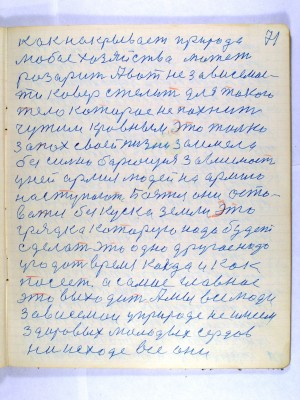 71
как накрывает природа
любое хозяйства может
разарит Авот не зависемос-
ти ковер стелит для такого
тело каторае не пахнить
чужим кровным. Это толко
запох своей жизни заимела
бессилно барющия зависемост
уней армия людей на армию
наступают Баятся они оста-
ватся без куска земли Это
грядка каторую надо будет
сделат это одно другое надо
угодат время Когда и как
посеет, а самае главнае
это выходит Амы все люди
зависемои уприроде не имеем
здоровых молодых сердов
На исходе все они